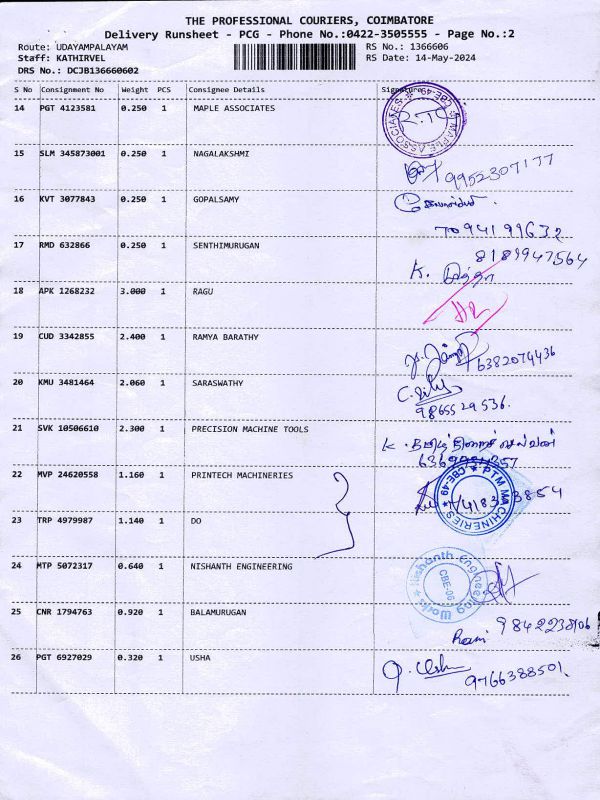 THE PROFESSIONAL COURIERS, COIMBATORE
Delivery Runsheet - PCG - Phone No.:0422-3505555 - Page No.:2
Route: UDAYAMPALAYAM RS No.: 1366606
Staff: KATHIRVEL RS Date: 14-May-2024
DRS No.: DCJB136660602
S No Consignment No Weight PCS Consignee Details Signature
14 PGT 4123581 0.250 1 MAPLE ASSOCIATES
MAPLE ASSOCIATES CBE-49
15 SLM 345873001 0.250 1 NAGALAKSHMI
9952307177
16 KVT 3077843 0.250 1 GOPALSAMY
7094199632
17 RMD 632866 0.250 1 SENTHIMURUGAN
8189947564
K.
18 APK 1268232 3.000 1 RAGU
19 CUD 3342855 2.400 1 RAMYA BARATHY
6382074436
20 KMU 3481464 2.060 1 SARASWATHY
9865529536.
21 SVK 10506610 2.300 1 PRECISION MACHINE TOOLS
K.
22 MVP 24620558 1.160 1 PRINTECH MACHINERIES
PTM MACHINERIES CBE-49
23 TRP 4979987 1.140 1 DO
24 MTP 5072317 0.640 1 NISHANTH ENGINEERING
Nishanth Engineering Works CBE-06
25 CNR 1794763 0.920 1 BALAMURUGAN
9842238106
26 PGT 6927029 0.320 1 USHA
9766388501.